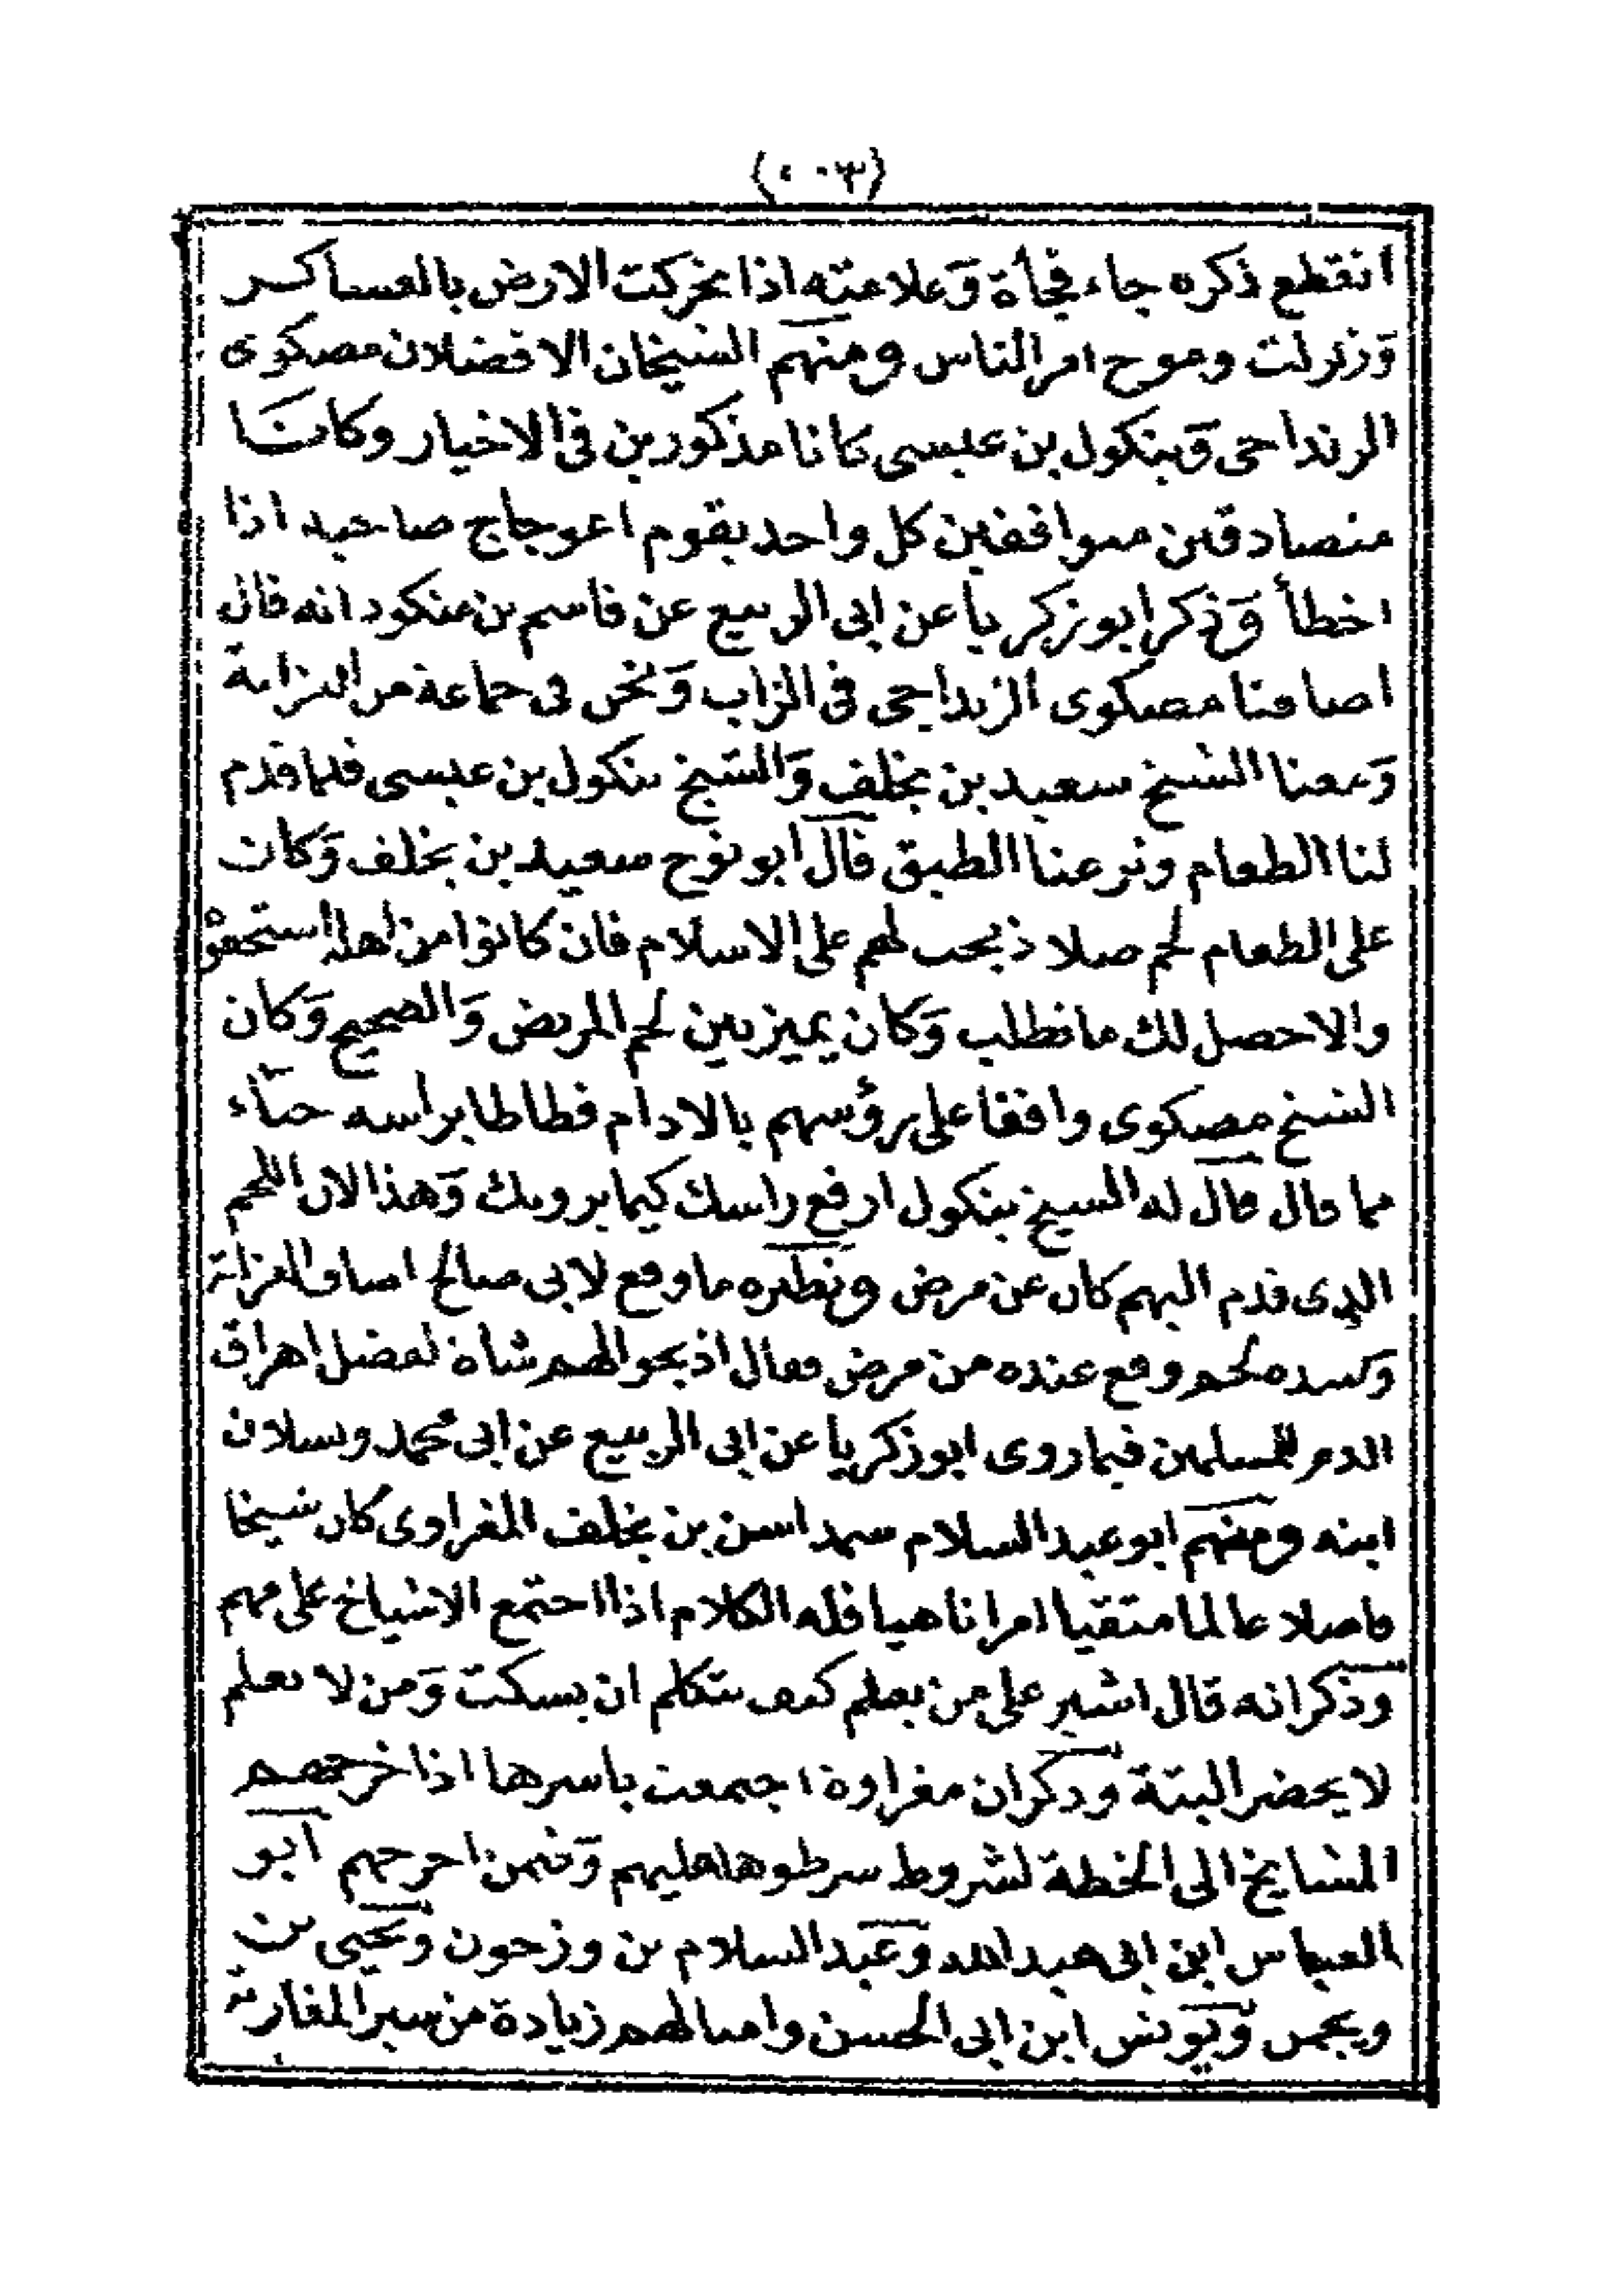 (٤٠٣)
انقطع ذكره جاء فجأة وعلامته اذا تحركت الارض بالعساكر
وزلزلت وموج امر الناس ومنهم الشيخان الافضلان مصكوى
الزنداجى وينكول بن عيسى كانا مذكورين فى الاخيار وكانا
متصادقين متوافقين كل واحد يقوم اعوجاج صاحبه اذا
اخطأ وذكر ابو زكريا عن ابى الربيع عن قاسم بن منكود انه قال
اضافنا مصكوى الزنداجى فى الزاب ونحن فى جماعة من العزابة
ومعنا الشيخ سعيد بن يخلف والشيخ ينكول بن عيسى فلما قدم
لنا الطعام ونزعنا الطبق قال ابو نوح سعيد بن يخلف وكان
على الطعام لحم صلا ذبحت لهم على الاسلام فان كانوا من اهله استحقوا
والا حصل لك ما تطلب وكان يميز بين لحم المريض والصحيح وكان
الشيخ مصكوى واقفا على رؤسهم بالادام فطاطا براسه حياء
مما قال قال له الشيخ ينكول ارفع راسك كيما يرويك وهذا لان اللحم
الذى قدم اليهم كان عن مرض ونظيره ما وقع لابى صالح اضاف العزابة
وعنده لحم وقع عنده من مرض فقال اذبحوا لهم شاة لفضل اهراق
الدم للمسلمين فيما روى ابو زكريا عن ابى الربيع عن ابى محمد ويسلان
ابنه ومنهم ابو عبد السلام سمداسن بن يخلف المغراوى كان شيخا
فاضلا عالما متقيا امرا ناهيا فله الكلام اذا اجتمع الاشياخ على مهم
وذكر انه قال اشير على من يعلم كيف يتكلم ان يسكت ومن لا يعلم
لا يحضر البتة وذكر ان مغراوة اجمعت باسرها اذا خرجهم
المشايخ الى الخطة لشروط شرطوها عليهم وفيمن اخرجهم ابو
العباس ابن ابى عبد الله وعبد السلام بن وزجون ويحيى بن
ويجمن ويونس ابن ابى الحسن وامثالهم زيادة من سير المغاربة